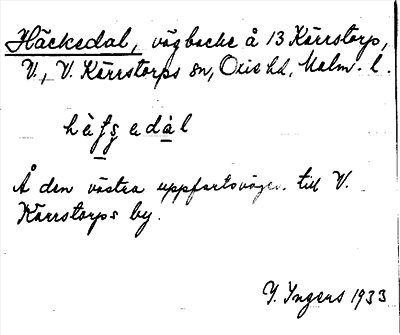 Häcksdal, vägbacke å 13 Kärrstorp,
V., V. Kärrstorps sn, Oxie hd, Malm. l.
Å den västra uppfartsvägen till V.
Kärrstorps by.
I. Ingers 1933